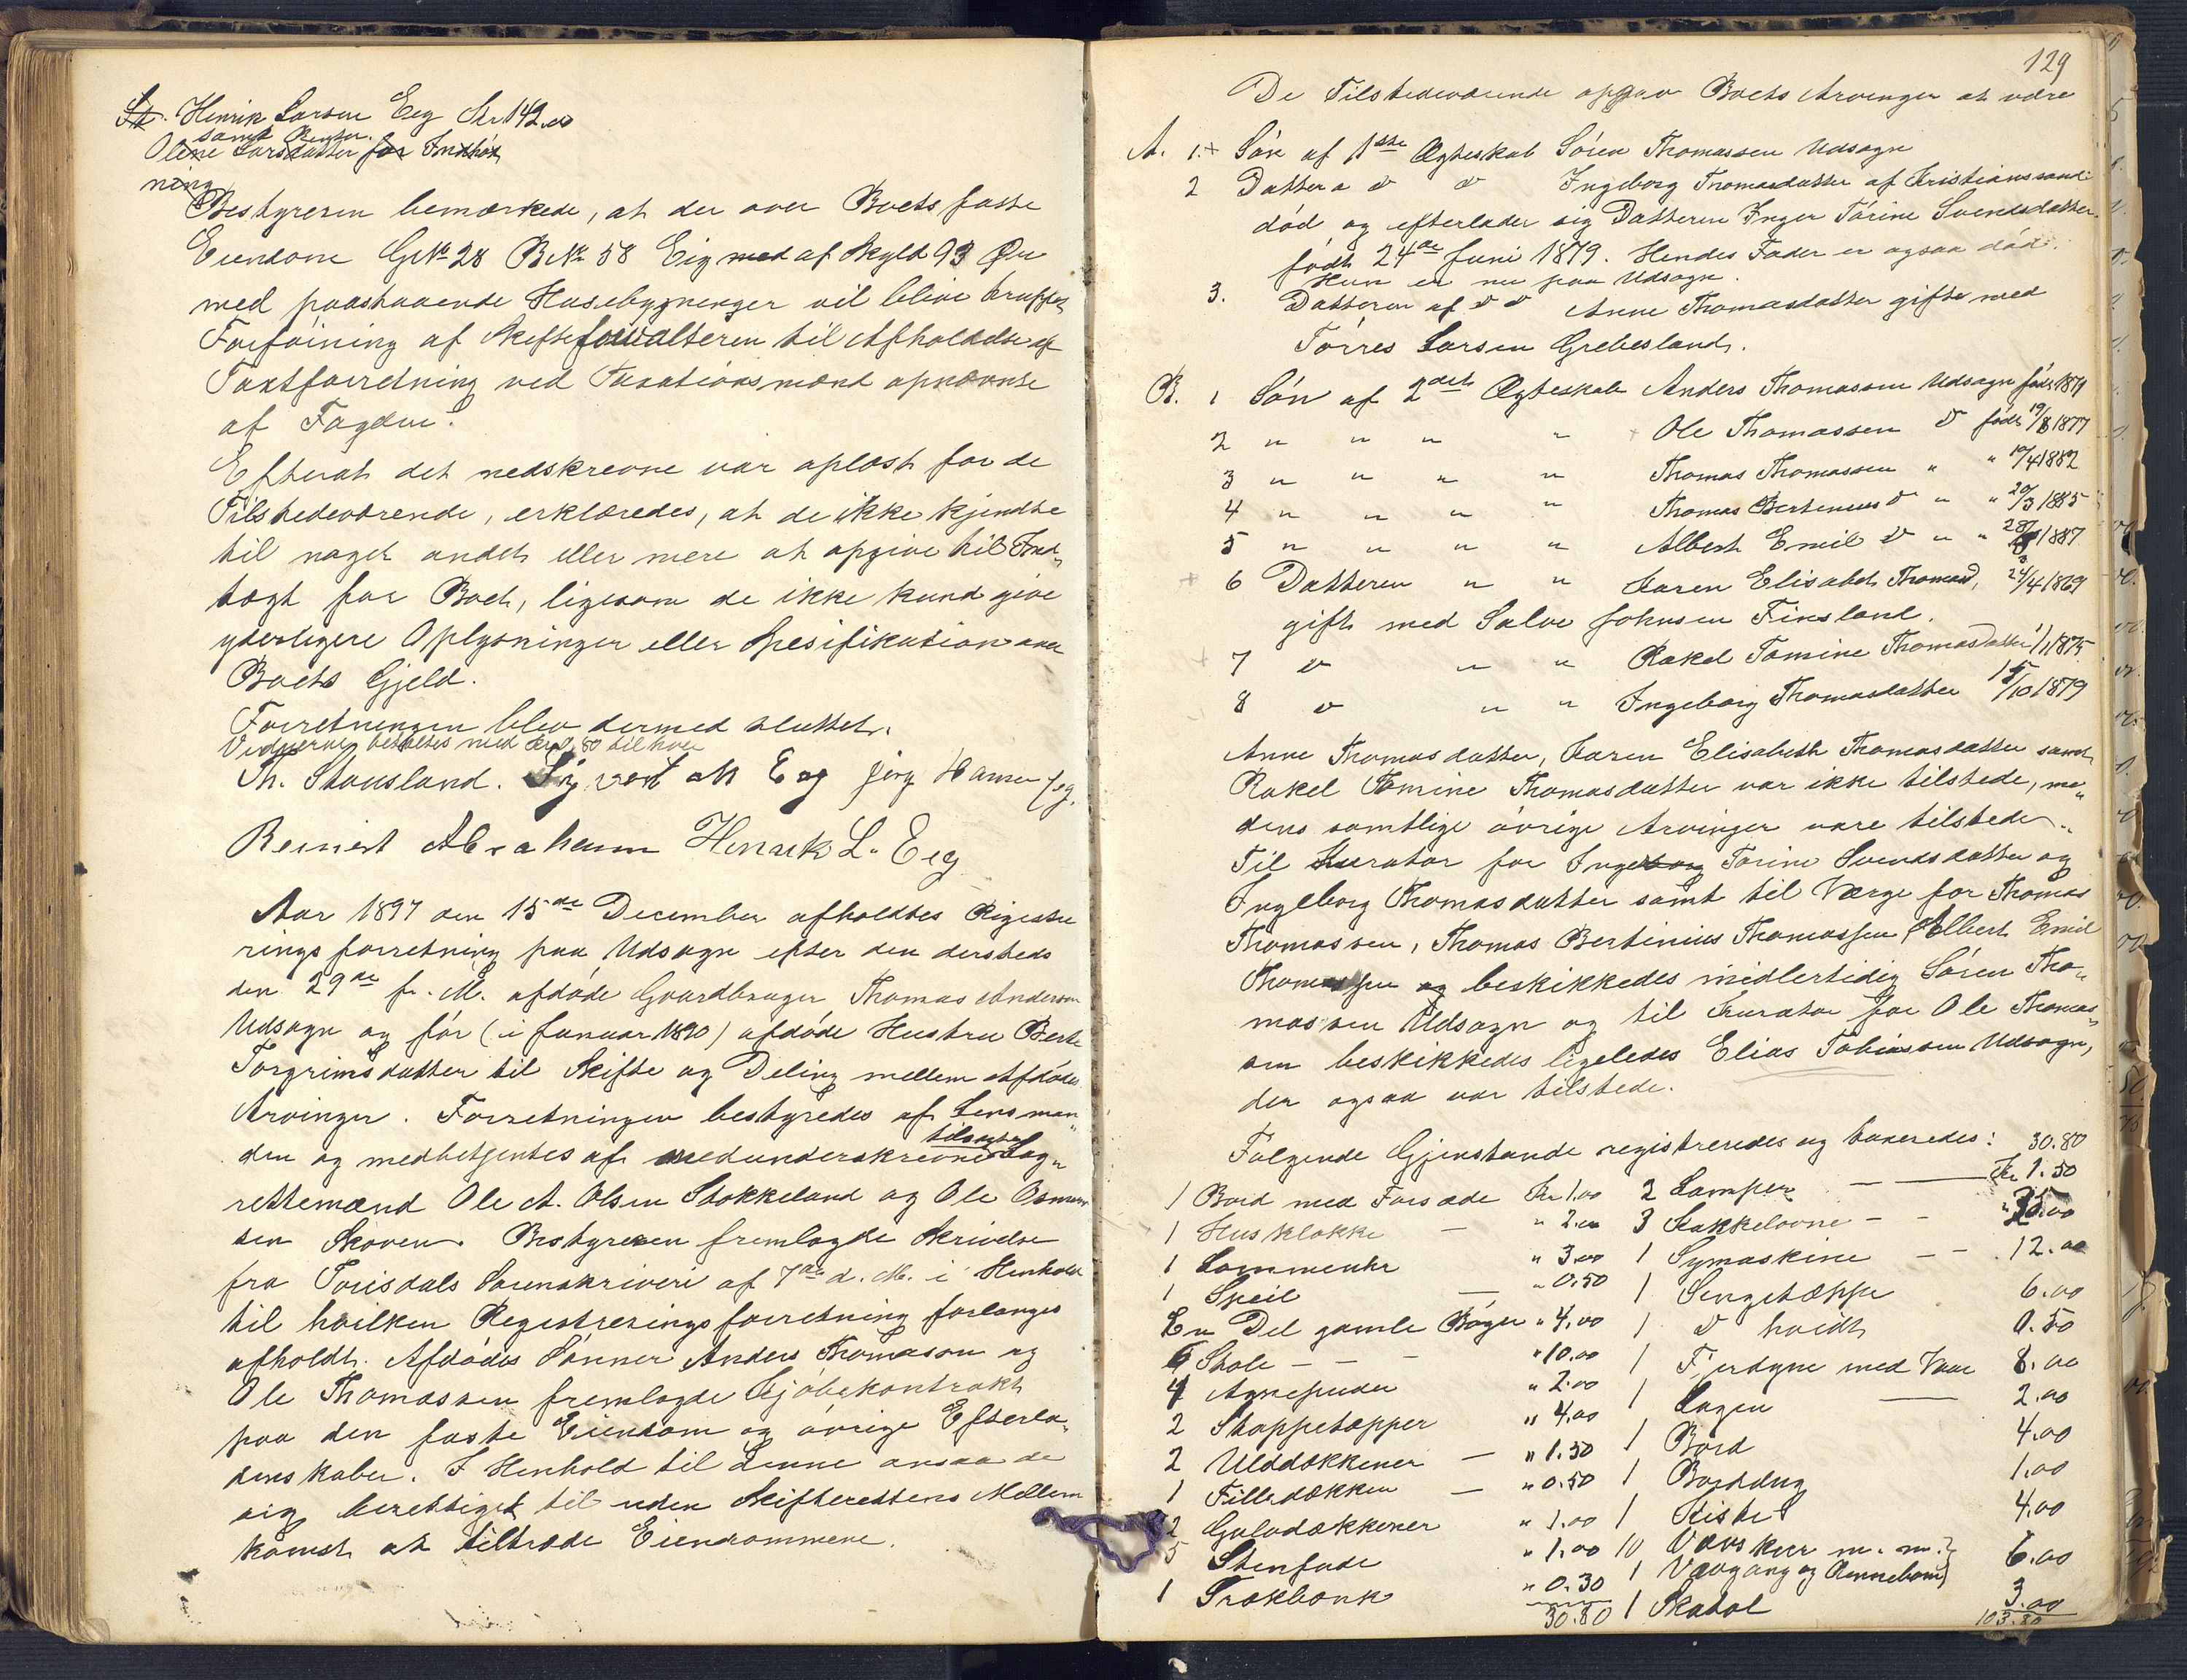 Henrik Larsen Eeg Kr 142.00
samt Renter.
Olene Larsdatter for Indhøst
ning
Bestyreren bemærkede, at der over Boets faste
Eiendom GNo 28 BNo 58 Eig med af Skyld 93 Øre
med paastaaende Husebygninger vil blive truffet
Forføining af Skifteforvalteren til Afholdelse af
Taxtforretning ved Taxationsmænd opnævnte
af Fogden.
Efterat det nedskrevne var oplæst for de
Tilstedeværende, erklæredes, at de ikke kjendte
til noget andet eller mere at opgive til Ind„
tægt for Boet, ligesom de ikke kund give
yderligere Oplysninger eller Spesifikation over
Boets Gjeld.
Forretningen blev dermed sluttet.
Vidnerne betaltes med Kr 0,80 til hver
Th. Stousland. Sigvart Eeg Jørg Hansen Eeg.
Reinert Abraham Henrik L. Eeg
Aar 1897 den 15de December afholdtes Registre
ringsforretning paa Udsogn efter den dersteds
den 29de f. M. afdøde Gaardbruger Thomas Andersen
Udsogn og før (i Januar 1890) afdøde Hustru Berte
Torgrimsdatter til Skifte og Deling mellem Afdødes
Arvinger. Forretningen bestyredes af Lensman„
den og medbetjentes af medunderskrevne tilsagte Lag„
rettemænd Ole A. Olsen Stokkeland og Ole Osmun
sen Skoven. Bestyreren fremlagde Skrivelse
fra Torisdals Sorenskriveri af 7de d. M. i Henhold
til hvilken Registreringsforretning forlanges
afholdt. Afdødes Sønner Anders Thomason og
Ole Thomassen fremlagde Kjøbekontrakt
paa den faste Eiendom og øvrige Efterla„
denskaber. I Henhold til denne ansaa de
sig berettiget til uden Skifterettens Mellem
komst at tiltræde Eiendommene.
129
De Tilstedeværende opgav Boets Arvinger at være
A. 1. Søn af 1ste Ægteskab Søren Thomassen Udsogn
2 Datter a d d Ingeborg Thomasdatter af Kristianssand
død og efterlader sig Datteren Inger Torine Svendsdatter
født 24de Juni 1879. Hendes Fader er ogsaa død.
Hun er nu paa Udsogn.
3. Datteren af d d Anne Thomasdatter gift med
Tørres Larsen Grebesland.
B. 1 Søn af 2det Ægteskab Anders Thomassen Udsogn født 1871
2 „ „ „ „ Ole Thomassen d født 19/8 1877
3 „ „ „ „ Thomas Thomassen „ „ 10/4 1882
4 „ „ „ „ Thomas Bertinius d „ „ 20/3 1885
5 „ „ „ „ Albert Emil d „ „ 28/ 1887
6 Datteren „ „ Karen Elisabet Thomasd, 24/4 1869
gift med Salve Johnsen Finsland.
7 d „ „ Rakel Tomine Thomasdatter 1/1 1875
8 d „ „ Ingeborg Thomasdatter 15/10 1879
Anne Thomasdatter, Karen Elisabeth Thomasdatter samt
Rakel Tomine Thomasdatter var ikke tilstede, me„
dens samtlige øvrige Arvinger vare tilstede.
Til Kurator for Ingeborg Torine Svendsdatter og
Ingeborg Thomasdatter samt til Værge for Thomas
Thomassen, Thomas Bertinius Thomassen, Albert Emil
Thomassen og beskikkedes midlertidig Søren Tho„
massen Udsogn og til Kurator for Ole Thomas„
sen beskikkedes ligeledes Elias Tobiassen Udsogn,
der ogsaa var tilstede.
Følgende Gjenstande registreredes og taxeredes: 30.80
1 Bord med Forsæde Kr 1.00 2 Lamper — Kr 1.50
1 Husklokke — „ 2.00 3 Kakkelovne - -
1 Lommeuhr „ 3.00 1 Symaskine — — 12.00
1 Speil — „ 0.50 1 Sengetæppe 6.00
En Del gamle Bøger „ 4.00 1 d hvidt 0.50
6 Stole — — — „ 10.00 1 Fjerdyne med Vaar 8.00
4 Agnepuder „ 2.00 1 Lagen — 2.00
2 Stoppetæpper „ 4.00 1 Bord 4.00
2 Ulddækkener — „ 1.50 1 Borddug 1.00
1 Filledækken — „ 0.50 1 Kiste 4.00
2 Gulvdækkener „ 1.00 10 Vævskeer m. m.
5 Stenfade „ 1.00 1 Vævgang og Rennebom 6.00
1 Trækbænk „ 0.30 1 Skatol 3.00
30.80 103.80